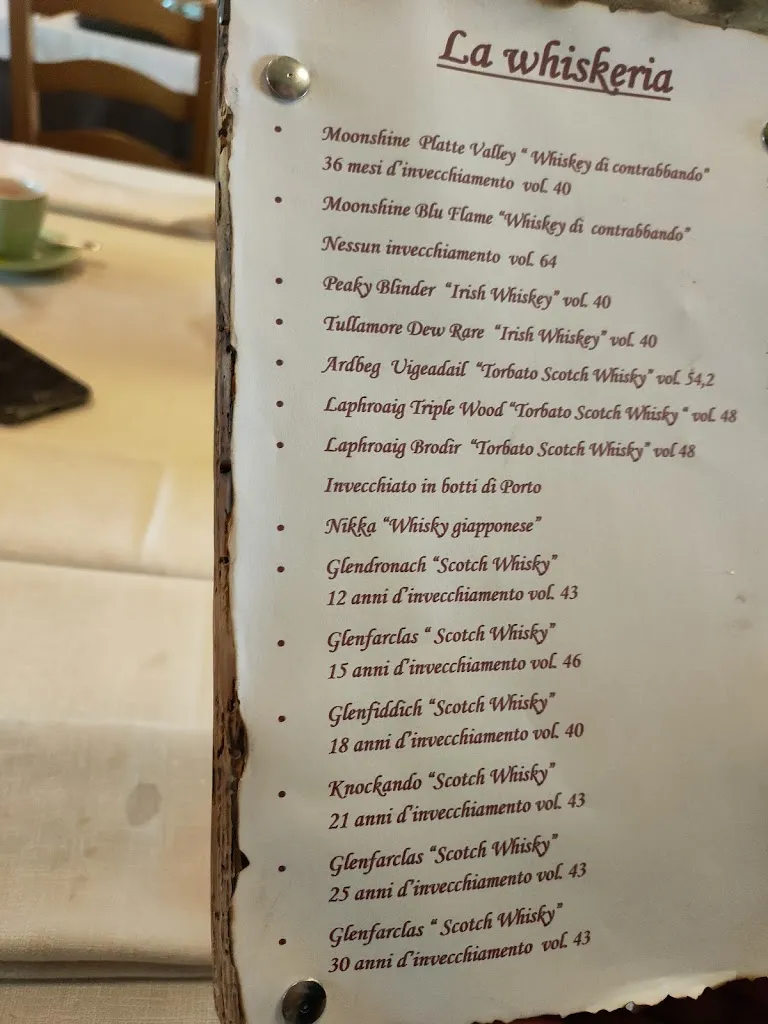 La whiskeria
• Moonshine Platte Valley “ Whiskey di contrabbando”
36 mesi d’invecchiamento vol. 40
• Moonshine Blu Flame “Whiskey di contrabbando”
Nessun invecchiamento vol. 64
• Peaky Blinder “Irish Whiskey” vol. 40
• Tullamore Dew Rare “Irish Whiskey” vol. 40
• Ardbeg Uigeadail “Torbato Scotch Whisky” vol. 54,2
• Laphroaig Triple Wood “Torbato Scotch Whisky “ vol. 48
• Laphroaig Brodir “Torbato Scotch Whisky” vol 48
Invecchiato in botti di Porto
• Nikka “Whisky giapponese”
• Glendronach “Scotch Whisky”
12 anni d’invecchiamento vol. 43
• Glenfarclas “ Scotch Whisky”
15 anni d’invecchiamento vol. 46
• Glenfiddich “Scotch Whisky”
18 anni d’invecchiamento vol. 40
• Knockando “Scotch Whisky”
21 anni d’invecchiamento vol. 43
• Glenfarclas “Scotch Whisky”
25 anni d’invecchiamento vol. 43
• Glenfarclas “ Scotch Whisky”
30 anni d’invecchiamento vol. 43